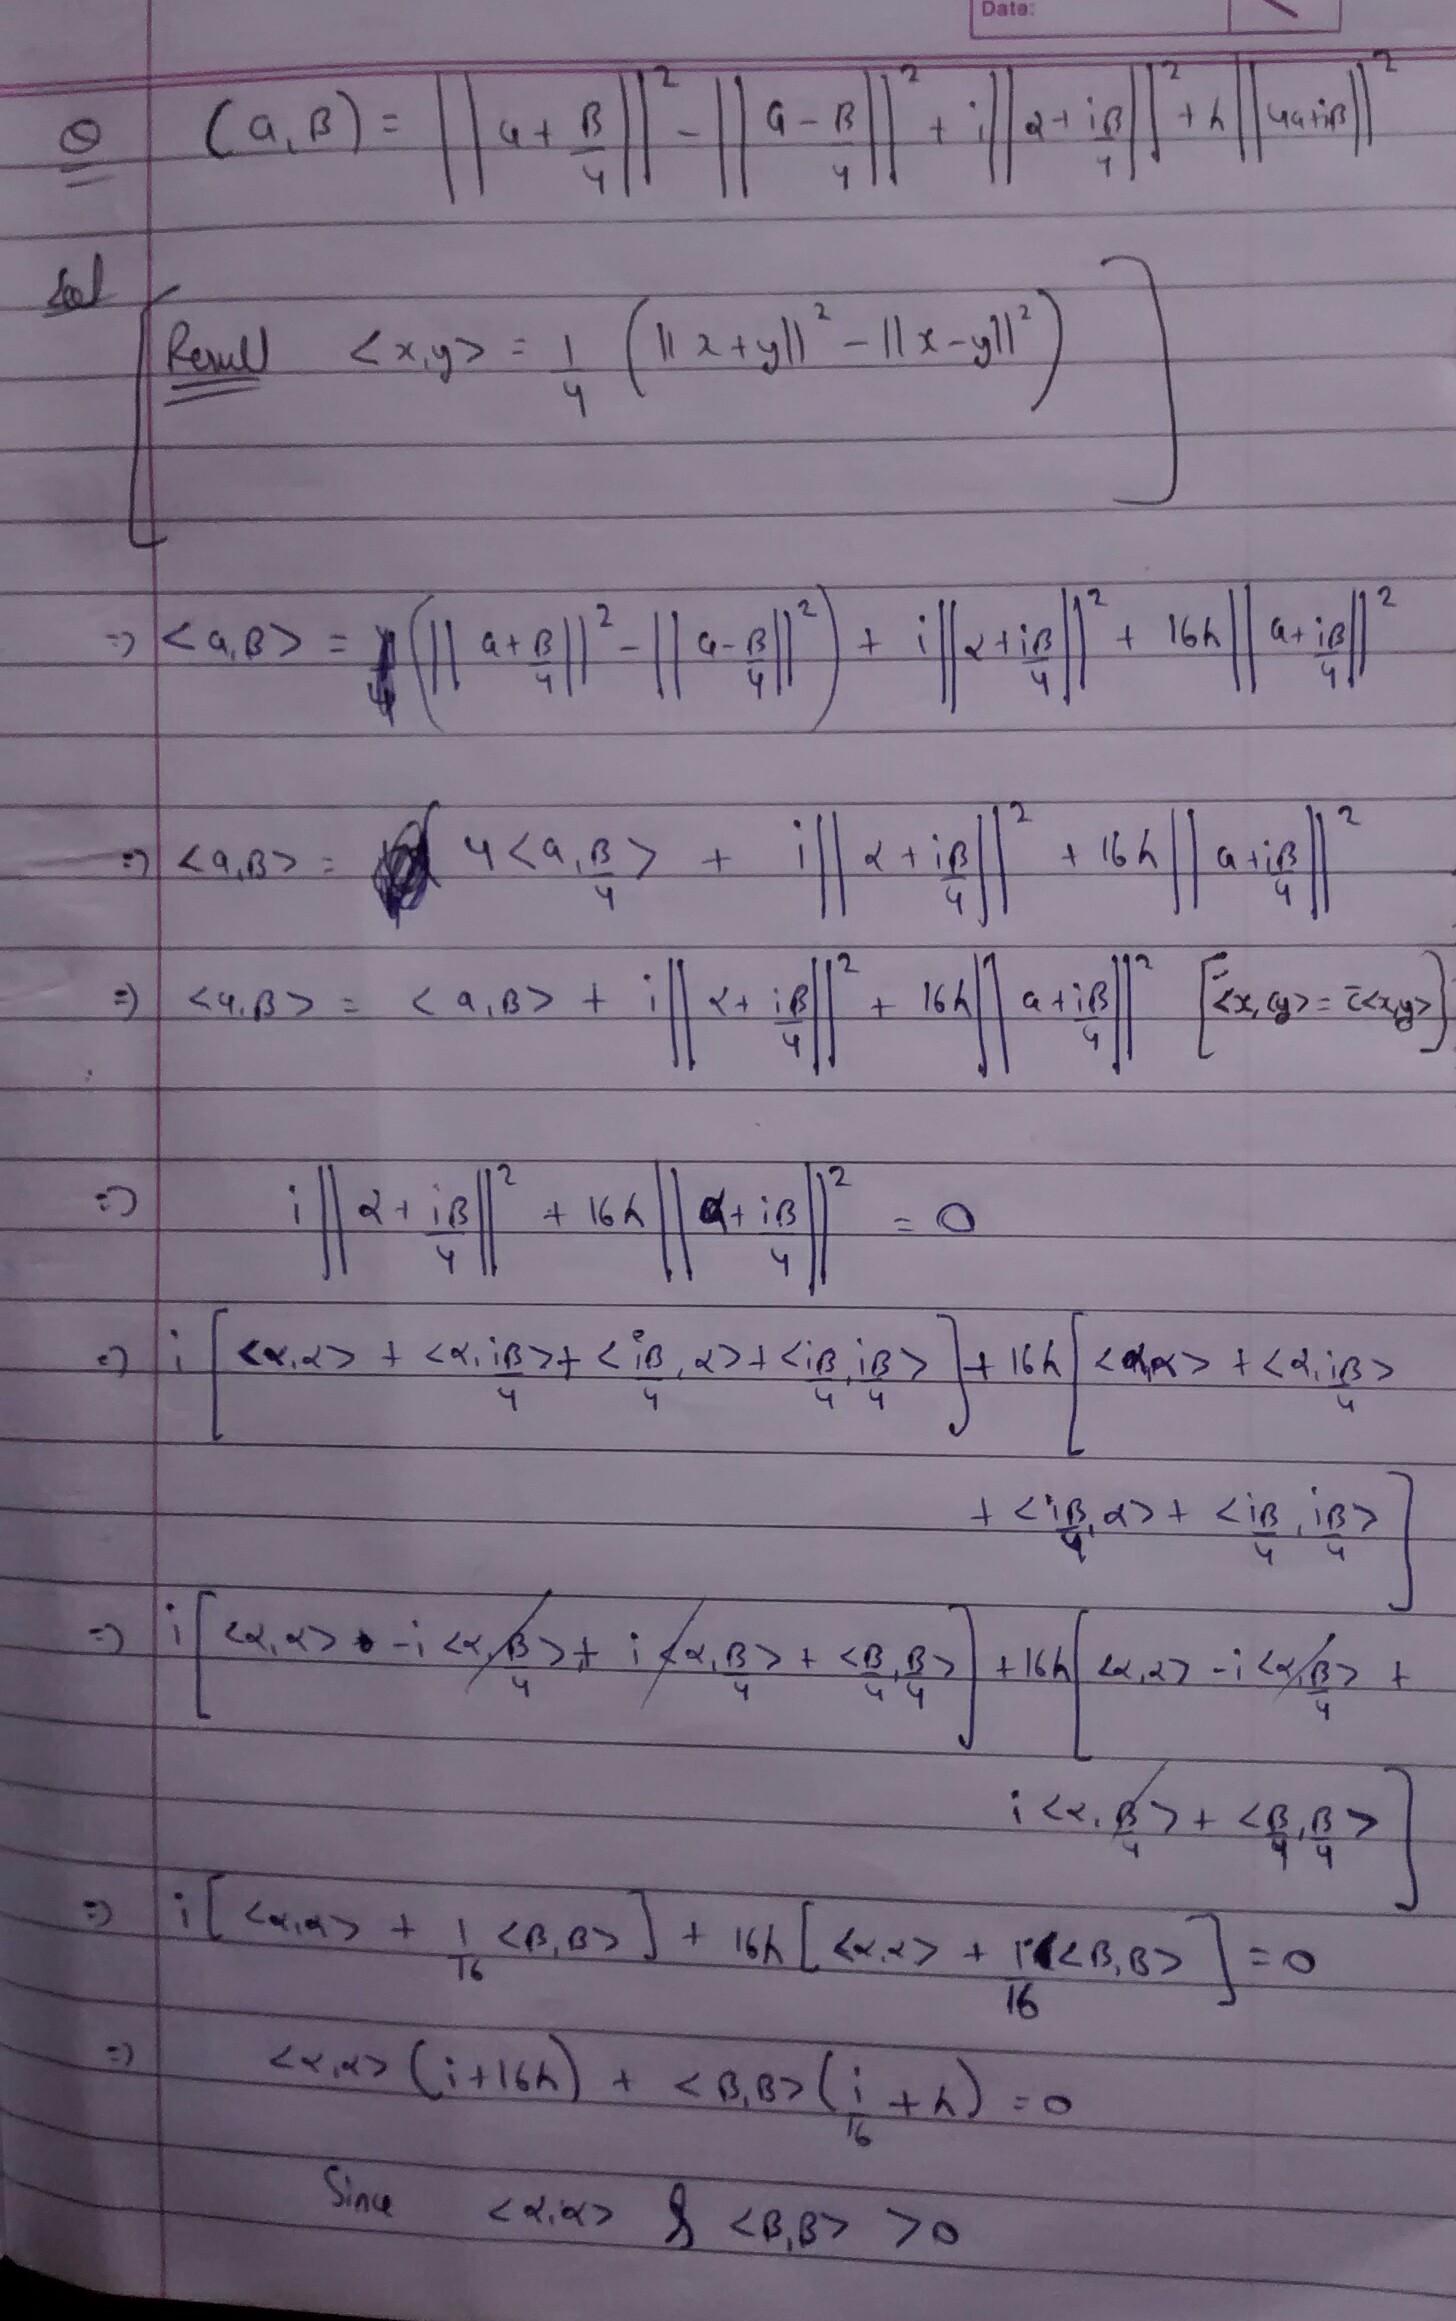 Date:
Q (α,β) = ||α+β/4||² - ||α-β/4||² + i||α+iβ/4||² + h||4α+iβ||²
Sol
[Result <x,y> = 1/4 (||x+y||² - ||x-y||²)]
=> <α,β> = (||α+β/4||² - ||α-β/4||²) + i||α+iβ/4||² + 16h||α+iβ/4||²
=> <α,β> = 4<α,β/4> + i||α+iβ/4||² + 16h||α+iβ/4||²
=> <α,β> = <α,β> + i||α+iβ/4||² + 16h||α+iβ/4||² [∵ <x,cy> = c̄<x,y>]
=> i||α+iβ/4||² + 16h||α+iβ/4||² = 0
=> i[<α,α> + <α,iβ/4> + <iβ/4,α> + <iβ/4,iβ/4>] + 16h[<α,α> + <α,iβ/4>
+ <iβ/4,α> + <iβ/4,iβ/4>]
=> i[<α,α> -i<α,β/4> + i<α,β/4> + <β/4,β/4>] + 16h[<α,α> -i<α,β/4> +
i<α,β/4> + <β/4,β/4>]
=> i[<α,α> + 1/16<β,β>] + 16h[<α,α> + 1/16<β,β>] = 0
=> <α,α>(i+16h) + <β,β>(i/16+h) = 0
Since <α,α> & <β,β> >0